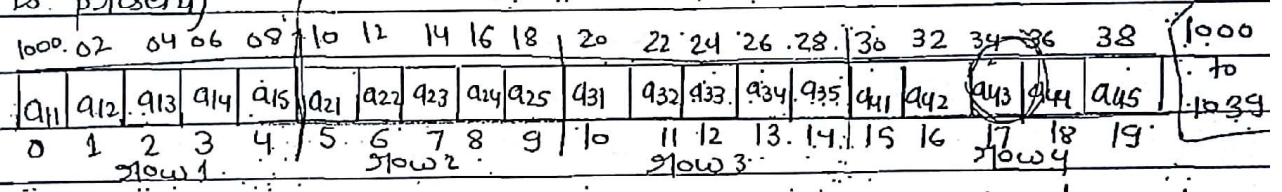 1000. 02 04 06 08 10 12 14 16 18 20 22 24 26 28 30 32 34 36 38 1000
to
1039
a11 a12 a13 a14 a15 a21 a22 a23 a24 a25 a31 a32 a33 a34 a35 a41 a42 a43 a44 a45
0 1 2 3 4 5 6 7 8 9 10 11 12 13 14 15 16 17 18 19
row 1 row 2 row 3 row 4